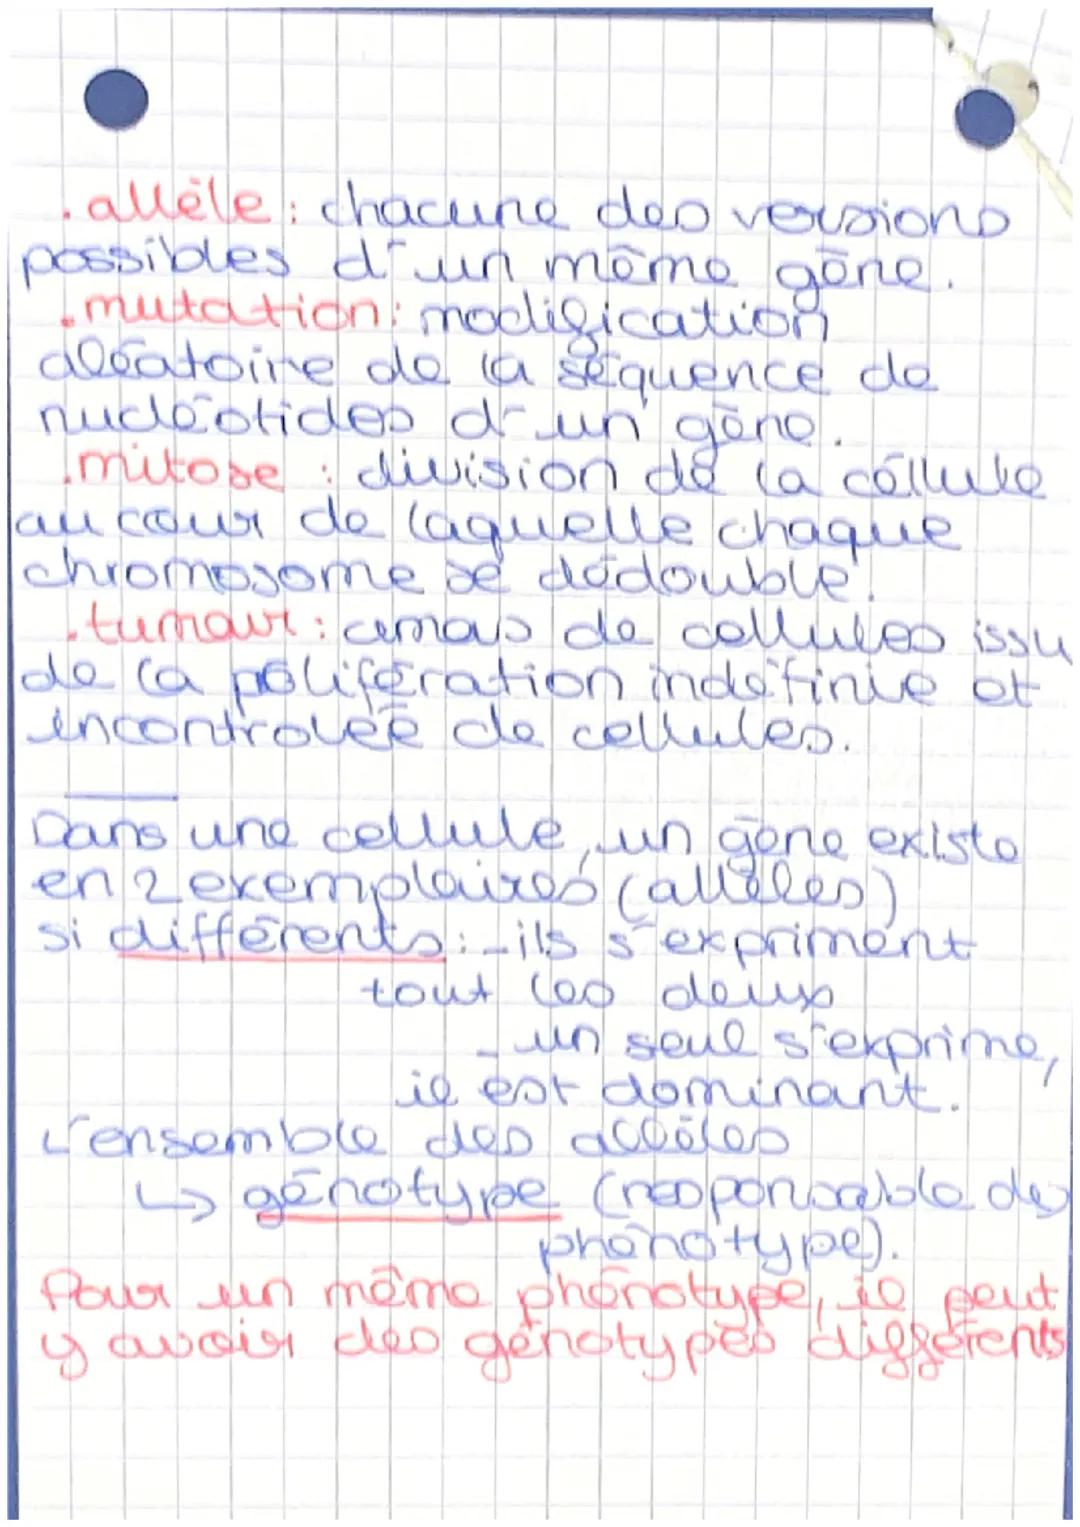 . allèle : chacune des versions
possibles d'un même gène.
. mutation : modification
aléatoire de la séquence de
nucléotides d'un gène.
. mitose : division de la céllule
au cour de laquelle chaque
chromosome se dédouble.
. tumeur : amas de cellules issu
de la poliferation indéfinie et
incontrolée de cellules.
Dans une cellule, un gène existe
en 2 exemplaires (allèles)
si différents : - ils s'expriment
tout les deux
- un seul s'exprime,
il est dominant.
L'ensemble des allèles
↳ génotype (responsable du
phénotype).
Pour un même phénotype, il peut
y avoir des génotypes différents